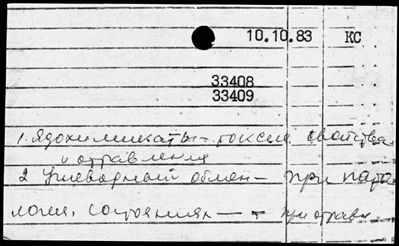 10.10.83 КС
33408
33409
1. Ядохимикаты - токсич. свойства
и отравления
2. Углеводный обмен - при пато
логич. состояниях - - при отравл